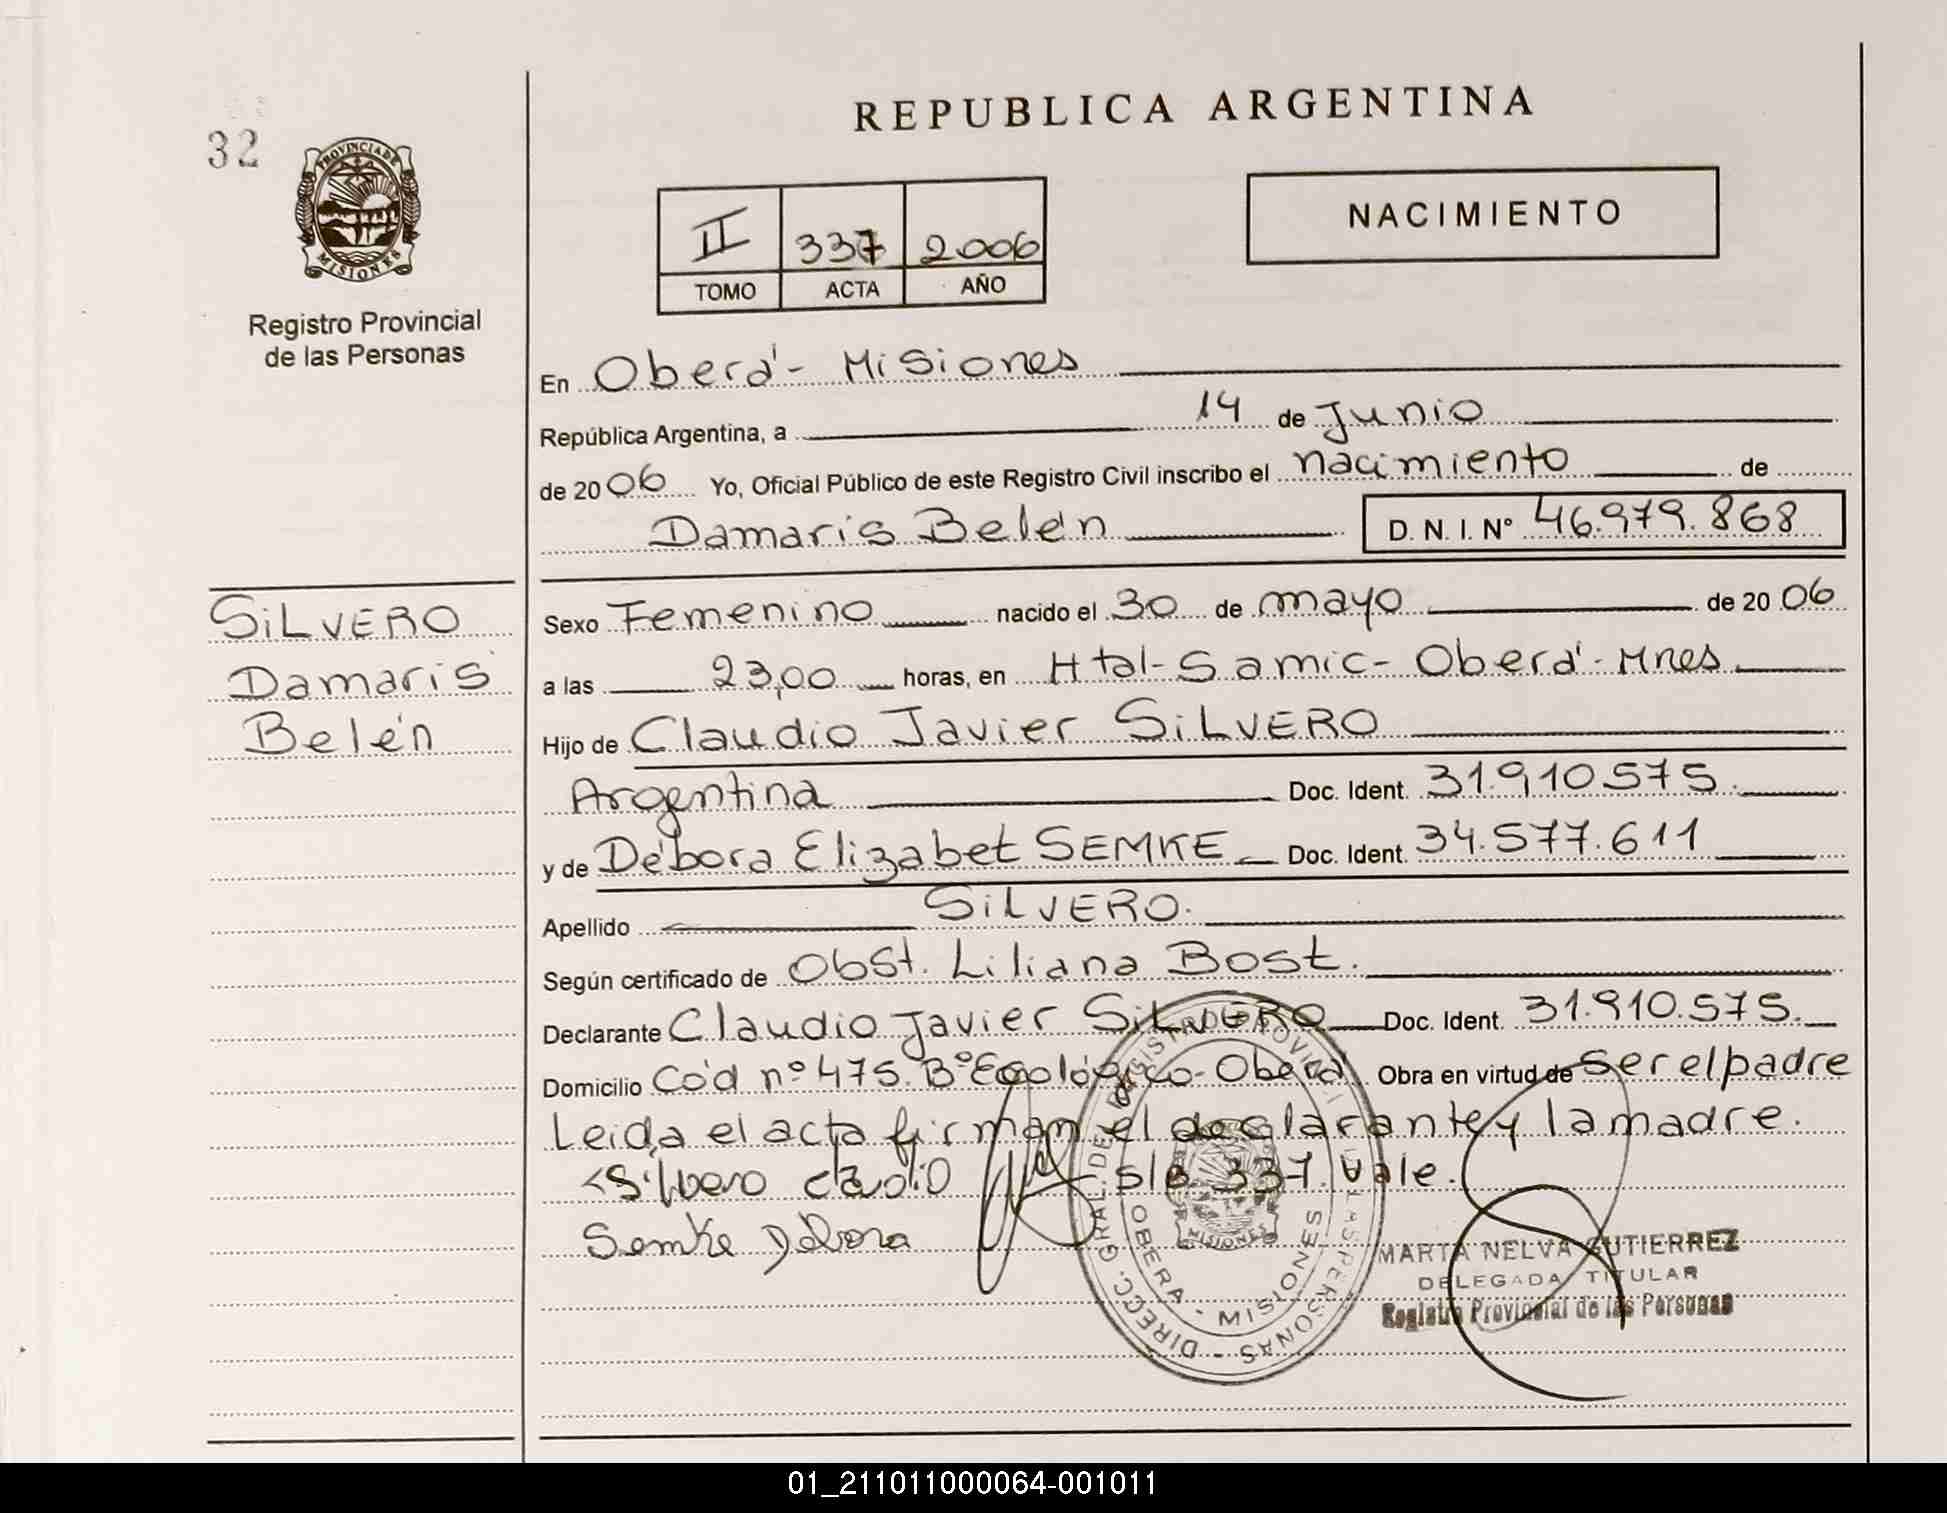 32
PROVINCIA DE
MISIONES
Registro Provincial
de las Personas
REPUBLICA ARGENTINA
II 337 2006
TOMO ACTA AÑO
NACIMIENTO
En Oberá - Misiones
República Argentina, a 14 de Junio
de 2006 Yo, Oficial Público de este Registro Civil inscribo el nacimiento de
Damaris Belén D. N. I. N° 46.979.868
SILVERO
Damaris
Belén
Sexo Femenino nacido el 30 de mayo de 2006
a las 23,00 horas, en Htal - Samic - Oberá - Mnes
Hijo de Claudio Javier SILVERO
Argentina Doc. Ident. 31.910.575.
y de Débora Elizabet SEMKE Doc. Ident. 34.577.611
Apellido SILVERO.
Según certificado de Obst. Liliana Bost.
Declarante Claudio Javier SILVERO Doc. Ident. 31.910.575.
Domicilio Cód nº 475. Bº Ecológico - Oberá Obra en virtud de ser el padre
Leida el acta firman el declarante y la madre.
Silvero Claudio s/b 337. Vale.
Semke Debora
DIRECC. GRAL. DEL REGISTRO PROVINCIAL DE LAS PERSONAS
OBERA - MISIONES
MISIONES
MARTA NELVA GUTIERREZ
DELEGADA TITULAR
Registro Provincial de las Personas
01_211011000064-001011